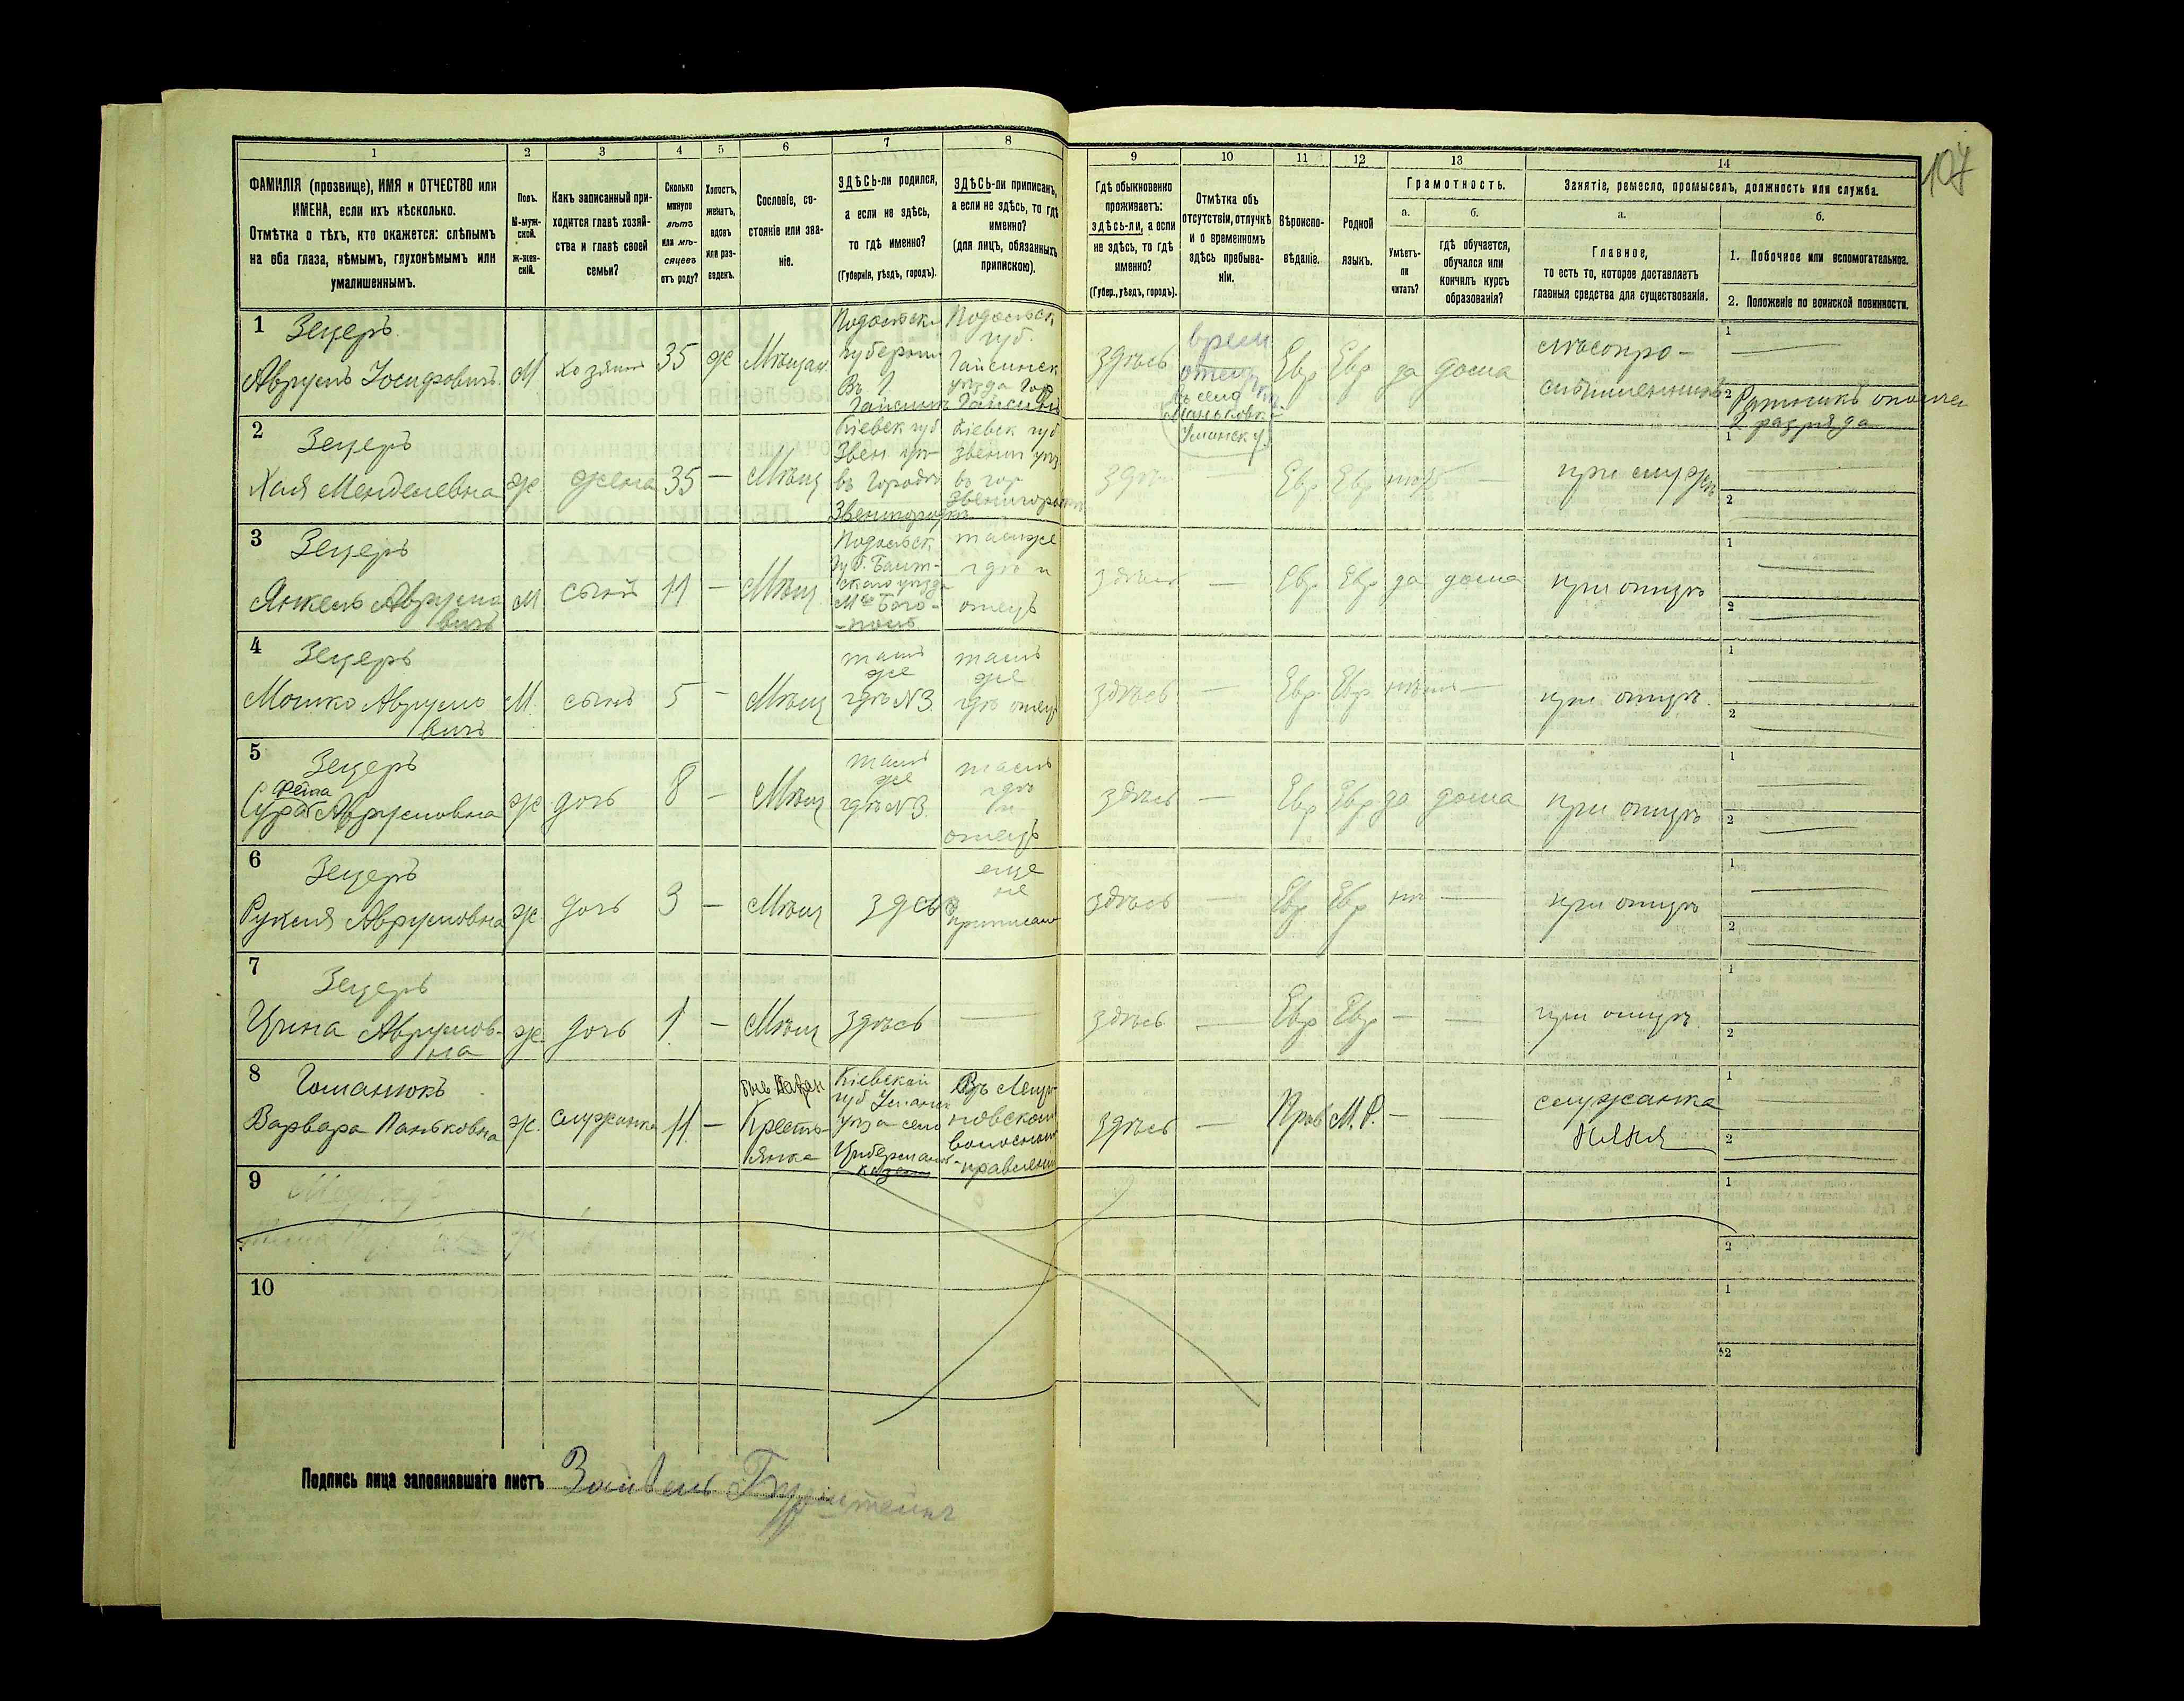 107
1 2 3 4 5 6 7 8 9 10 11 12 13 14
ФАМИЛІЯ (прозвище), ИМЯ и ОТЧЕСТВО или
ИМЕНА, если ихъ нѣсколько.
Отмѣтка о тѣхъ, кто окажется: слѣпымъ
на оба глаза, нѣмымъ, глухонѣмымъ или
умалишеннымъ.
Полъ.
М-муж-
ской.
Ж-жен-
скій.
Какъ записанный при-
ходится главѣ хозяй-
ства и главѣ своей
семьи?
Сколько
минуло
лѣтъ
или мѣ-
сяцевъ
отъ роду?
Холостъ,
женатъ,
вдовъ
или раз-
веденъ.
Сословіе, со-
стояніе или зва-
ніе.
ЗДѢСЬ-ли родился,
а если не здѣсь,
то гдѣ именно?
(Губернія, уѣздъ, городъ).
ЗДѢСЬ-ли приписанъ,
а если не здѣсь, то гдѣ
именно?
(для лицъ, обязанныхъ
припискою).
Гдѣ обыкновенно
проживаетъ:
здѣсь-ли, а если
не здѣсь, то гдѣ
именно?
(Губер., уѣздъ, городъ).
Отмѣтка объ
отсутствіи, отлучкѣ
и о временномъ
здѣсь пребыва-
ніи.
Вѣроиспо-
вѣданіе.
Родной
языкъ.
Грамотность.
а.
Умѣетъ-
ли
читать?
б.
гдѣ обучается,
обучался или
кончилъ курсъ
образованія?
Занятіе, ремесло, промыселъ, должность или служба.
а.
Главное,
то есть то, которое доставляетъ
главныя средства для существованія.
б.
1. Побочное или вспомогательное.
2. Положеніе по воинской повинности.
1 Зецеръ
Аврумъ Іосифовичъ
М
хозяинъ
35
ж
Мѣщан.
Подольск
губерни
Въ Г
Гайсинѣ
Подольск
губ.
Гайсинск
уѣзда Гор
Гайсинъ
здѣсь
врем
отлуч
въ село
Маньковка
Уманск у.
Евр
Евр
да
дома
1
2 Ратникъ ополче
2 разряда
2 Зецеръ
Хая Менделевна
ж
жена
35
Мѣщ
Кіевск губ
Звен уѣ
въ Городѣ
Звенигородкѣ
Кіевск губ
звениг уѣз
въ гор
Звенигородкѣ
здѣсь
Евр
Евр
нѣтъ
при мужѣ
1
2
3 Зецеръ
Янкель Аврумо
вичъ
М
сынъ
11
Мѣщ
Подольск.
Губ. Балт-
скаго уѣзда
Мѣ Бого-
поль
тамже
гдѣ и
отецъ
здѣсь
Евр
Евр
да
дома
при отцѣ
1
2
4 Зецеръ
Мошко Аврумо
вичъ
М.
сынъ
5
Мѣщ
тамъ
же
гдѣ N3.
тамъ
же
гдѣ отецъ
здѣсь
Евр
Евр
нѣтъ
при отцѣ.
1
2
5 Зецеръ
Рейза
Сура Аврумовна
ж
дочь
8
Мѣщ
тамъ
же
гдѣ N3.
тамъ
гдѣ
и
отецъ
здѣсь
Евр
Евр
да
дома
при отцѣ
1
2
6 Зецеръ
Рухля Аврумовна
ж
дочь
3
Мѣщ
здѣсь
еще
не
приписана
здѣсь
Евр
Евр
нѣт
при отцѣ
1
2
7 Зецеръ
Аврумов-
на
ж.
дочь
1
Мѣщ
здѣсь
здѣсь
Евр
Евр
при отцѣ.
1
2
8 Гоманюкъ
Варвара Паньковна
ж.
служанка
11
Крестья-
янка
Кіевской
губ Уманск
уѣз село
Циберманов-
ка
волостномъ
правленіи
здѣсь
Прав
М. Р.
служанка
няня
1
2
9
1
2
10
1
2
Подпись лица заполнявшаго листъ